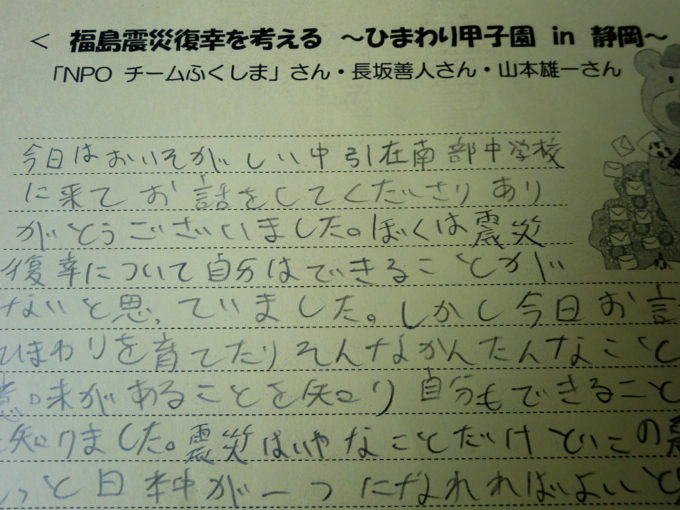 < 福島震災復幸を考える ～ひまわり甲子園 in 静岡～
「NPO チームふくしま」さん・長坂善人さん・山本雄一さん
今日はおいそがしい中引佐南部中学校
に来てお話をしてくださりあり
がとうございました。ぼくは震災
復幸について自分はできることが
ないと思っていました。しかし今日お
ひまわりを育てたりそんなかんたんなこと
味があることを知り自分もできること
知りました。震災はいやなことだけどこの
っと日本中が一つになれればよいと